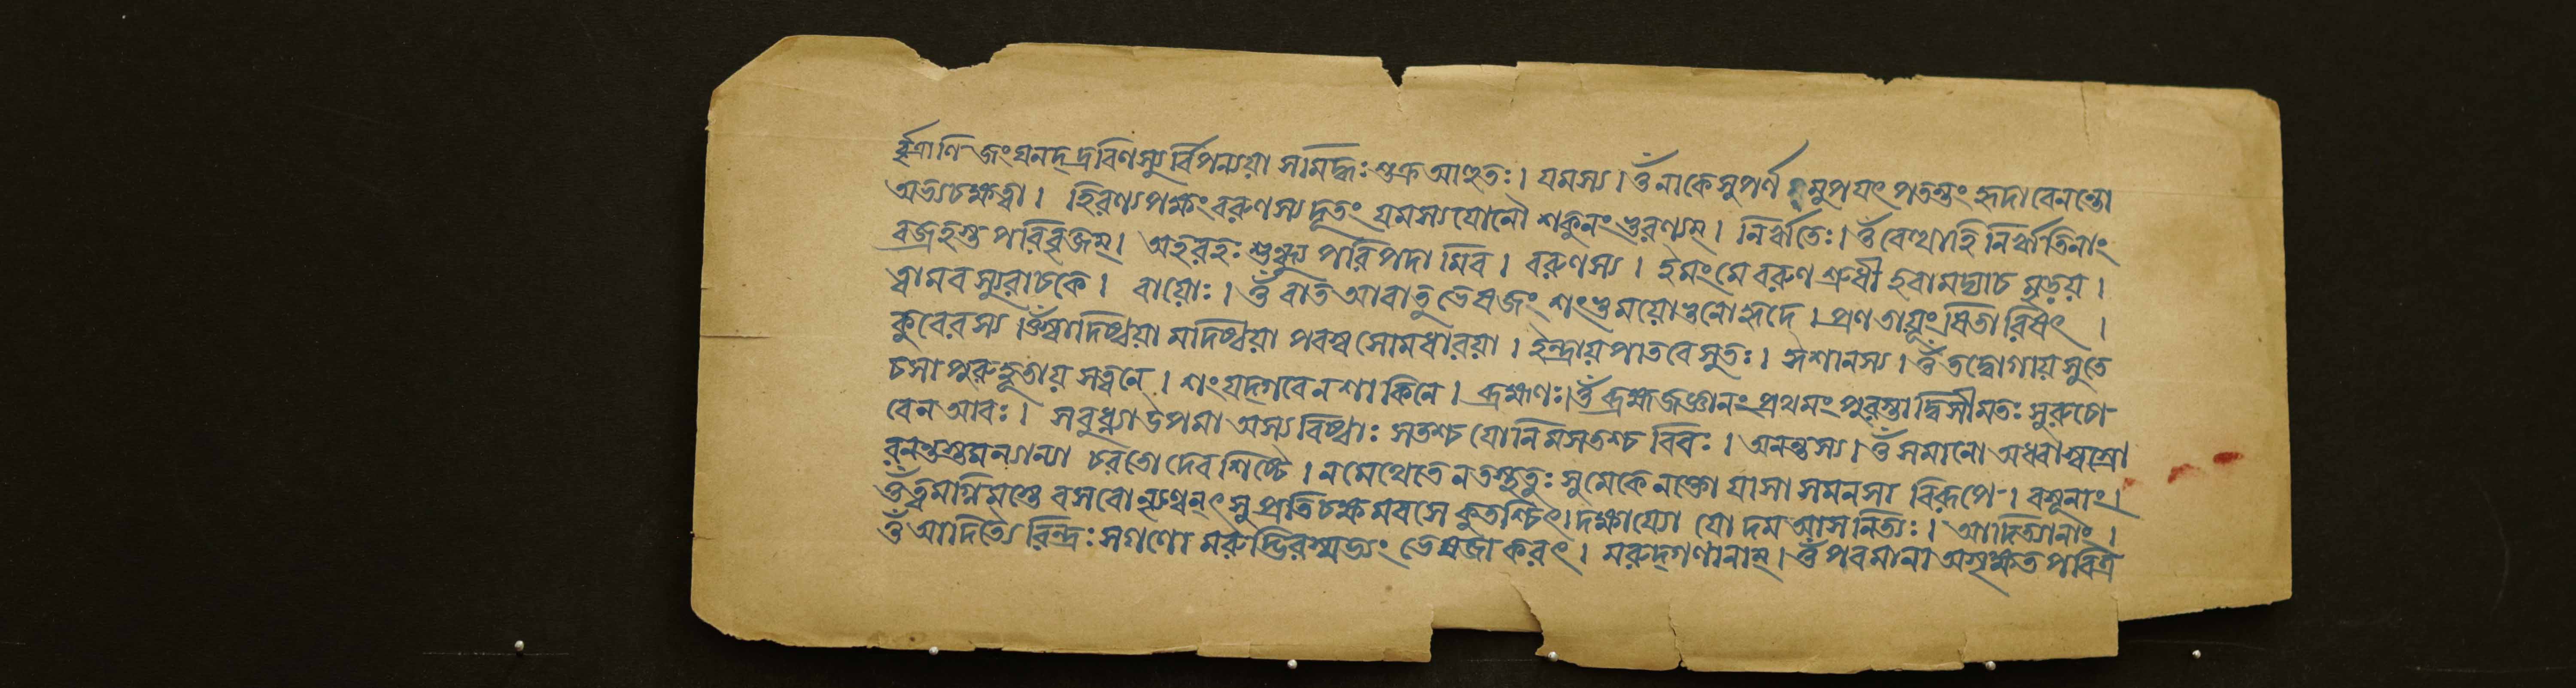 র্বৃত্রাণি জংঘনদ্ দ্রবিণস্যুর্বিপন্যয়া সমিদ্ধঃ শুক্র আহুতঃ। যমস্য। ওঁ নাকে সুপর্ণ মুপ যৎ পতন্তং হৃদা বেনন্তো
অভ্যচক্ষত্বা। হিরণ্যপক্ষং বরুণস্য দূতং যমস্য যোনৌ শকুনং ভুরণ্যম্। নির্ঋতেঃ। ওঁ বেত্থাহি নির্ঋতিনাং
বজ্রহস্ত পরিবৃজম্। অহরহঃ শুন্ধ্যু পরিপদামিব। বরুণস্য। ইমং মে বরুণ শ্রুধী হবামদ্যাচ মৃড়য়।
ত্বামবস্যুরাচকে। বায়োঃ। ওঁ বাত আবাতু ভেষজং শংভু ময়োভু নো হৃদে। প্রণ আয়ূংষি তারিষৎ।
কুবেরস্য ওঁ স্বাদিষ্ঠয়া মদিষ্ঠয়া পবস্ব সোমধারয়া। ইন্দ্রায় পাতবে সুতঃ। ঈশানস্য। ওঁ তদ্বোগায় সুতে
চসা পুরুহূতায় সত্বনে। শং যদ্গবে ন শাকিনে। ব্রহ্মণঃ। ওঁ ব্রহ্মজজ্ঞানং প্রথমং পুরস্তাদ্বিসীমতঃ সুরুচো
বেন আবঃ। সবুধ্ন্যা উপমা অস্য বিষ্ঠাঃ সতশ্চ যোনিমসতশ্চ বিবঃ। অনন্তস্য। ওঁ সমানো অধ্বা স্বস্রো
রনন্তস্তমন্যান্যা চরতো দেবশিষ্টে। ন মেথেতে ন তস্থতুঃ সুমেকে নক্তো ষাসা সমনসা বিরূপে। বসূনাং।
ওঁ ত্বমগ্নিমস্তে বসবো ন্যৃণ্বনৎ সুপ্রতিচক্ষমবসে কুতশ্চিৎ। দক্ষায্যো যো দম আস নিত্যঃ। আদিত্যানাং।
ওঁ আদিত্যৈ রিন্দ্রঃ সগণো মরুদ্ভিরস্মভ্যং ভেষজা করৎ। মরুদ্‌গণানাম্। ওঁ পবমানা অসৃক্ষত পবিত্র